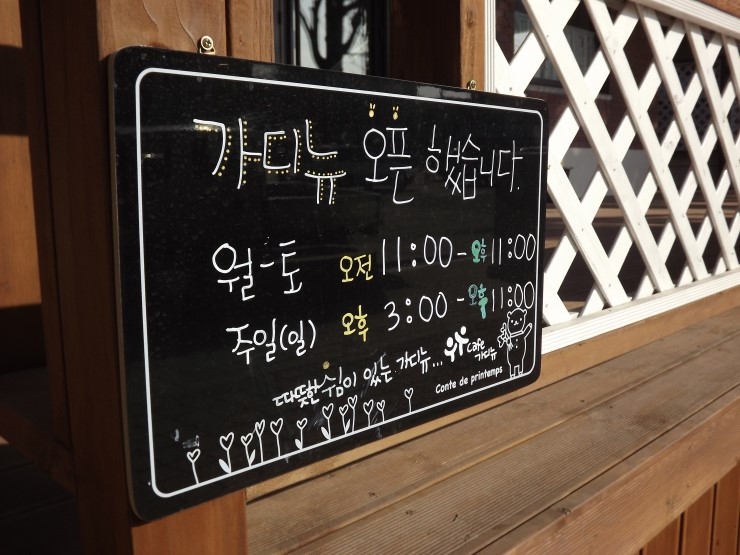 가디뉴 오픈 했습니다.
월-토 오전 11:00 - 오후 11:00
주일(일) 오후 3:00 - 오후 11:00
따뜻한 수심이 있는 가디뉴...
cafe
가디뉴
Conte de printemps